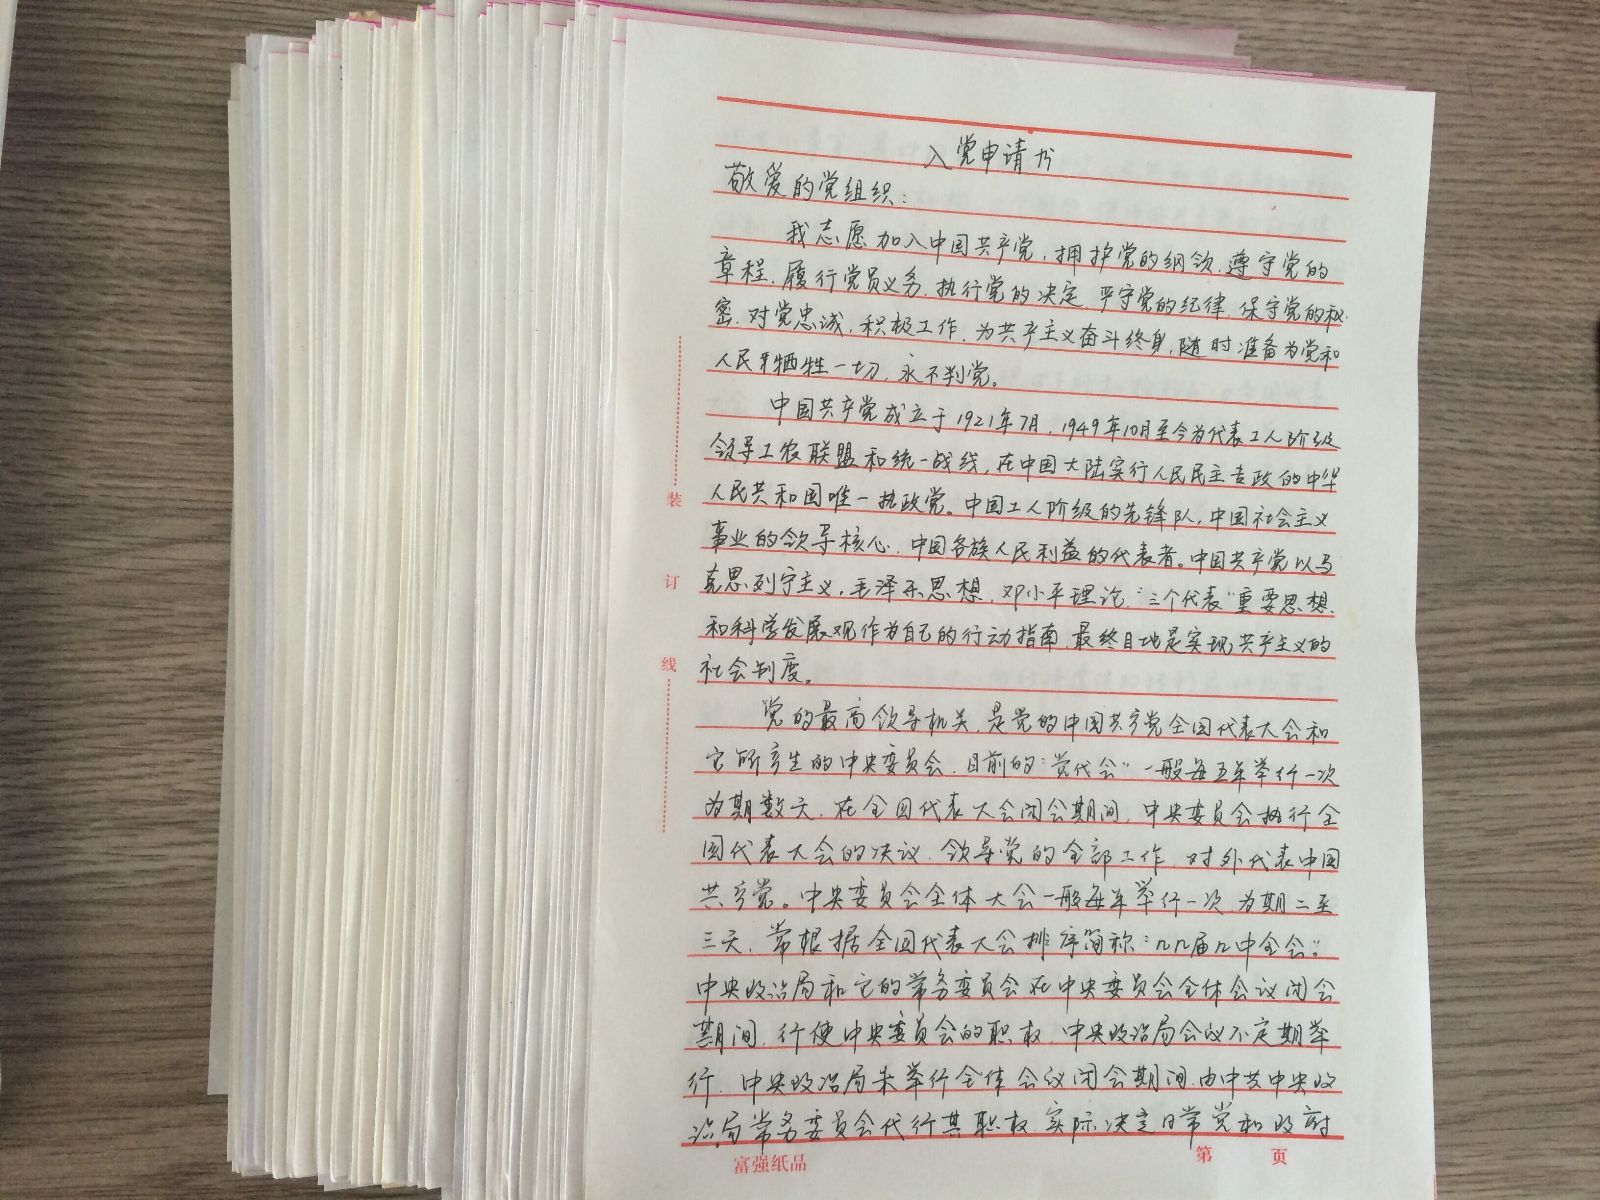 入党申请书
敬爱的党组织：
我志愿加入中国共产党，拥护党的纲领，遵守党的
章程，履行党员义务，执行党的决定，严守党的纪律，保守党的秘
密，对党忠诚，积极工作，为共产主义奋斗终身，随时准备为党和
人民牺牲一切，永不判党。
中国共产党成立于1921年7月，1949年10月至今为代表工人阶级
领导工农联盟和统一战线，在中国大陆实行人民民主专政的中华
人民共和国唯一执政党。中国工人阶级的先锋队，中国社会主义
事业的领导核心，中国各族人民利益的代表者。中国共产党以马
克思列宁主义，毛泽东思想，邓小平理论，“三个代表”重要思想，
和科学发展观作为自己的行动指南，最终目地是实现共产主义的
社会制度。
党的最高领导机关，是党的中国共产党全国代表大会和
它所产生的中央委员会，目前的“党代会”一般每五年举行一次
为期数天，在全国代表大会闭会期间，中央委员会执行全
国代表大会的决议，领导党的全部工作，对外代表中国
共产党。中央委员会全体大会一般每年举行一次，为期二至
三天，常根据全国代表大会排序简称“几几届几中全会”。
中央政治局和它的常务委员会在中央委员会全体会议闭会
期间，行使中央委员会的职权，中央政治局会议不定期举
行，中央政治局未举行全体会议闭会期间，由中共中央政
治局常务委员会代行其职权，实际决定日常党和政府
装
订
线
富强纸品
第 页